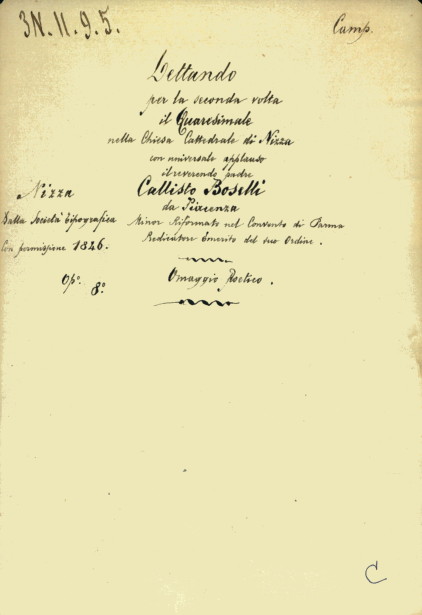 3N. 11. 9. 5.
Camp.
Dettando
per la seconda volta
il Quaresimale
nella Chiesa Cattedrale di Nizza
con universale applauso
il reverendo padre
Callisto Boselli
da Piacenza
Minor Riformato nel Convento di Parma
Predicatore Emerito del suo Ordine.
Omaggio Poetico.
Nizza
Dalla Società Tipografica
Con permissione 1826.
Op°. 8°.
C